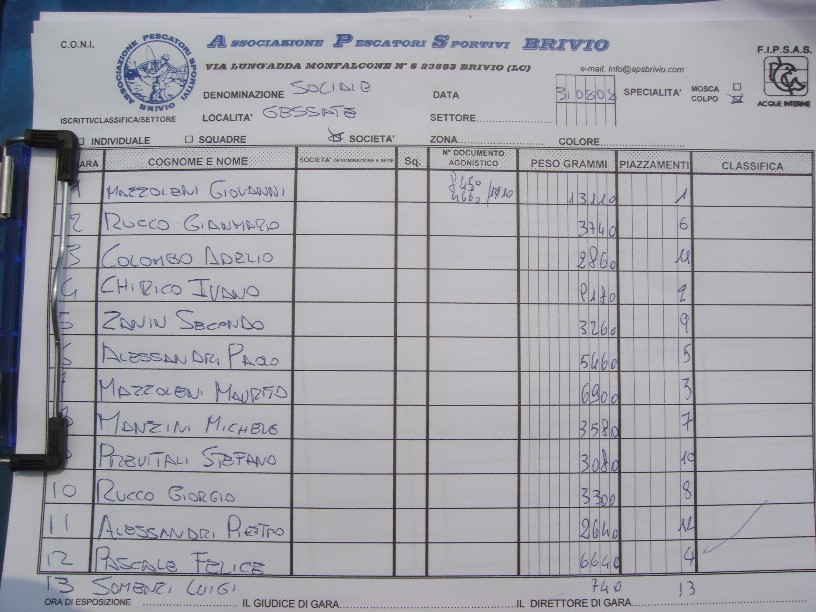 C.O.N.I.
ASSOCIAZIONE PESCATORI SPORTIVI BRIVIO
ASSOCIAZIONE PESCATORI SPORTIVI BRIVIO
F.I.P.S.A.S.
VIA LUNG'ADDA MONFALCONE N° 5 23883 BRIVIO (LC)
e-mail. info@apsbrivio.com
DENOMINAZIONE SOCIALE DATA 310808 SPECIALITA' MOSCA
COLPO
ACQUE INTERNE
LOCALITA' GESSATE SETTORE
ISCRITTI/CLASSIFICA/SETTORE
INDIVIDUALE SQUADRE SOCIETA' ZONA COLORE
ARA COGNOME E NOME SOCIETA' DENOMINAZIONE E SEDE Sq. N° DOCUMENTO AGONISTICO PESO GRAMMI PIAZZAMENTI CLASSIFICA
1 MAZZOLENI GIOVANNI 8450 4660 13110 1
2 RUCCO GIANMARIO 3740 6
3 COLOMBO ADELIO 2860 11
4 CHIRICO IVANO 8180 2
5 ZANIN SECONDO 3260 9
6 ALESSANDRI PAOLO 5460 5
7 MAZZOLENI MAURIZIO 6900 3
8 MANZINI MICHELE 3580 7
9 PREVITALI STEFANO 3080 10
10 RUCCO GIORGIO 3300 8
11 ALESSANDRI PIETRO 2640 12
12 PASCALE FELICE 6640 4
13 SOMENZI LUIGI 740 13
ORA DI ESPOSIZIONE IL GIUDICE DI GARA IL DIRETTORE DI GARA